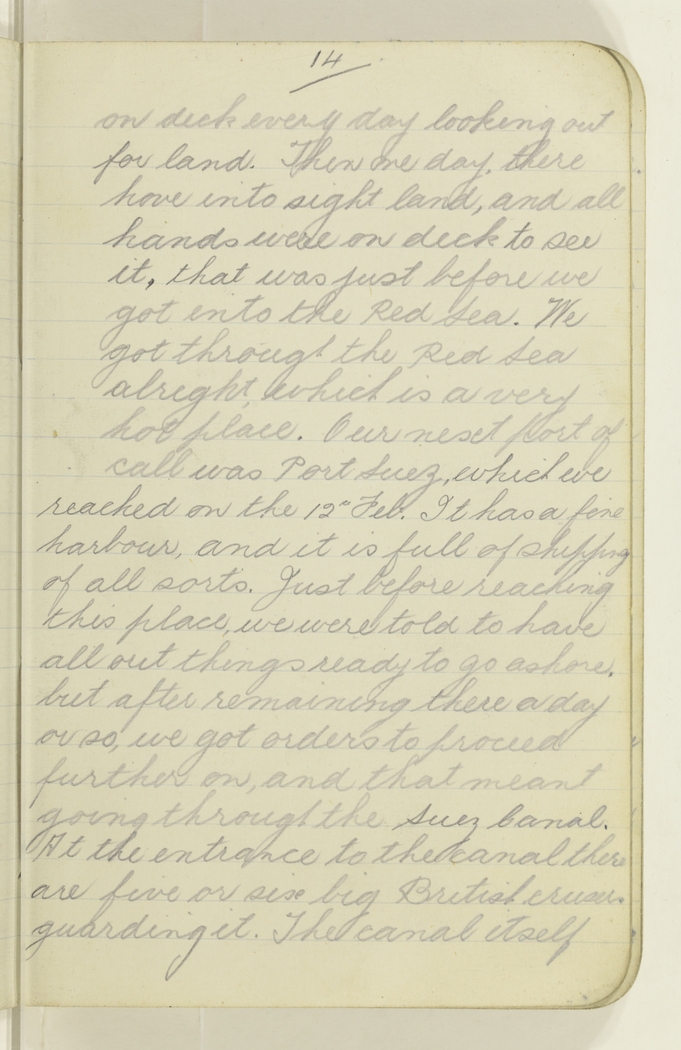 14
on deck every day looking out
for land. Then one day, there
hove into sight land, and all
hands were on deck to see
it, that was just before we
got into the Red Sea. We
got through the Red Sea
alright, which is a very
hot place. Our next port of
call was Port Suez, which we
reached on the 12" Feb. It has a fine
harbour, and it is full of shipping
of all sorts. Just before reaching
this place, we were told to have
all out things ready to go ashore,
but after remaining there a day
or so, we got orders to proceed
further on, and that meant
going through the Suez Canal.
At the entrance to the canal there
are five or six big British cruisers
guarding it. The canal itself